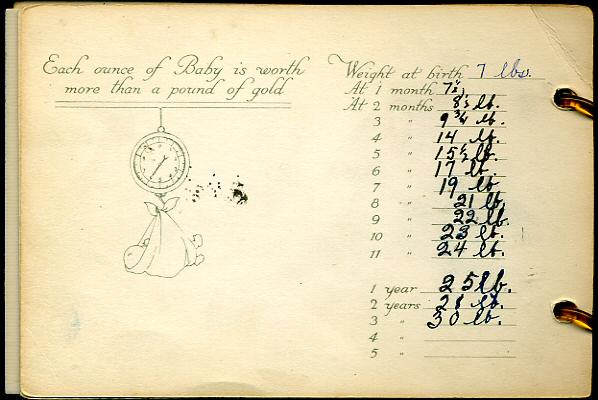 Each ounce of Baby is worth
more than a pound of gold
Weight at birth 7 lbs.
At 1 month 7½
At 2 months 8½ lb.
3 " 9¾ lb.
4 " 14 lb.
5 " 15½ lb.
6 " 17 lb.
7 " 19 lb
8 " 21 lb.
9 " 22 lb.
10 " 23 lb.
11 " 24 lb.
1 year 25 lb.
2 years 28 lb.
3 " 30 lb.
4 "
5 "